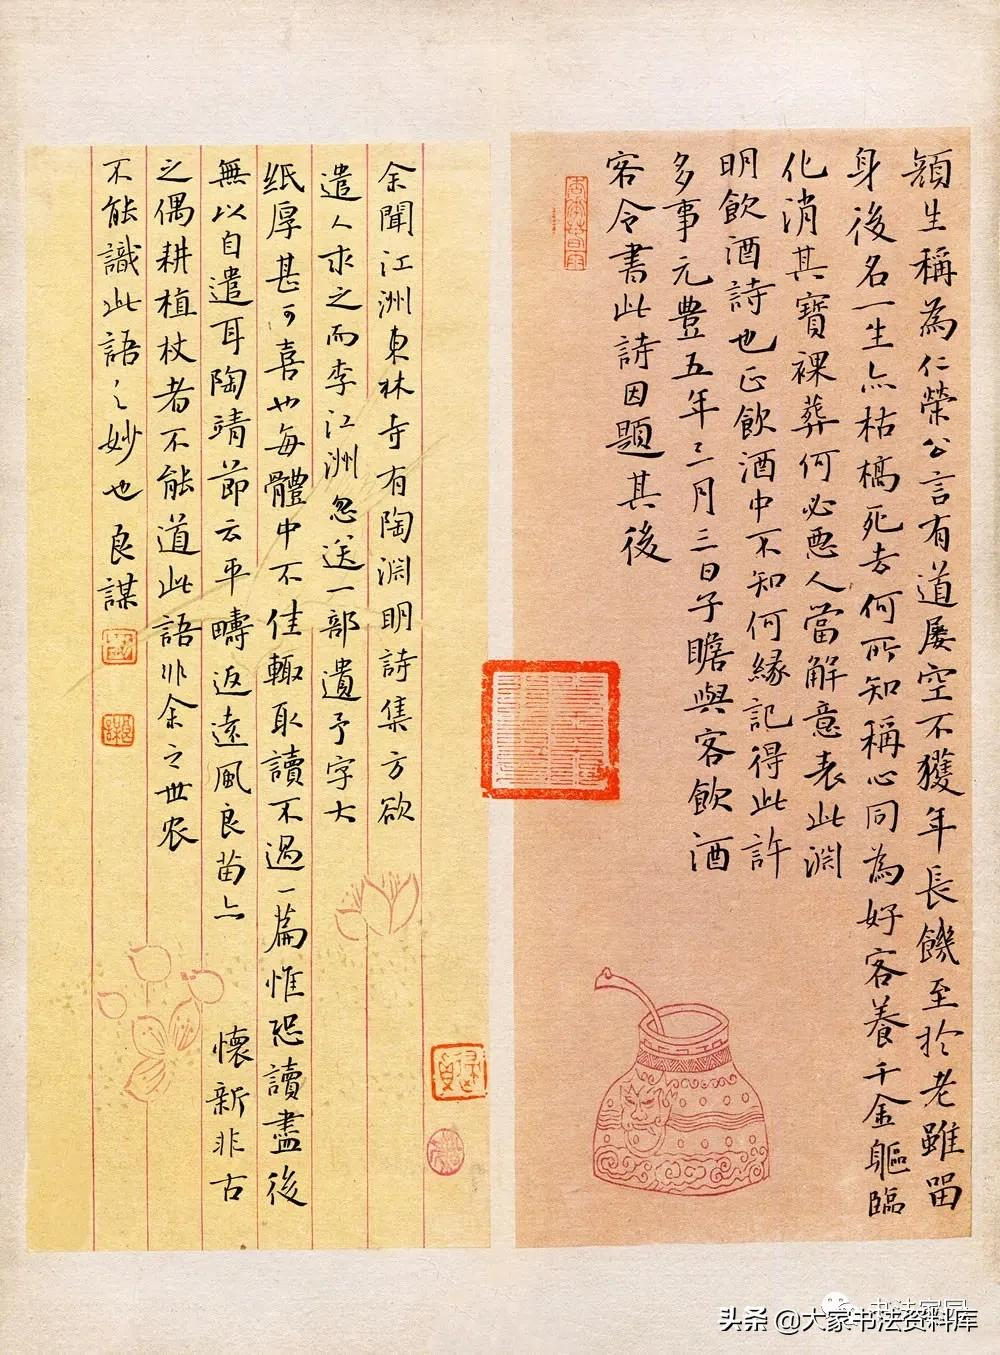 顔生稱為仁榮公言有道屡空不獲年長饑至扵老雖留
身後名一生亦枯槁死去何所知稱心同為好客養千金軀臨
化消其寶裸葬何必惡人當解意表此渊
明飲酒詩也正飲酒中不知何緣記得此許
多事元豊五年三月三日子瞻與客飲酒
客令書此詩因題其後
余聞江洲東林寺有陶渊明詩集方欲
遣人求之而李江洲忽送一部遺予字大
纸厚甚可喜也每體中不佳輒取讀不過一篇惟恐讀盡後
無以自遣耳陶靖節云平疇返遠風良苗亦懷新非古
之偶耕植杖者不能道此語非余之世农
不能識此語々妙也良謀
书法家园
头条 @大家书法资料库